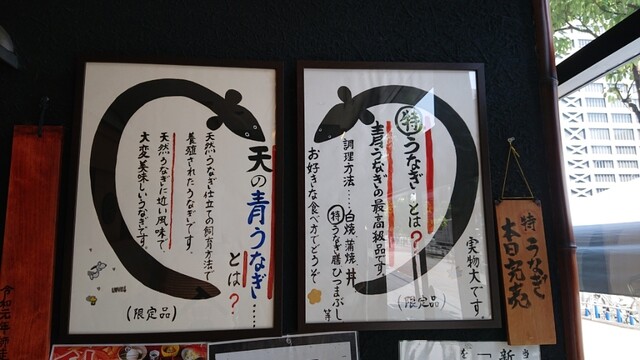 特うなぎ
本日完売
㊕うなぎとは?
青うなぎの最高級品です。
調理方法……白焼 蒲焼 丼
㊕うなぎ膳 ひつまぶし等
お好きな食べ方でどうぞ
実物大です。
(限定品)
天の青うなぎ……
とは?
天然うなぎ仕立の飼育方法で
養殖されたうなぎです。
天然うなぎに近い風味で、
大変美味しいうなぎです。
(限定品)
令和元年